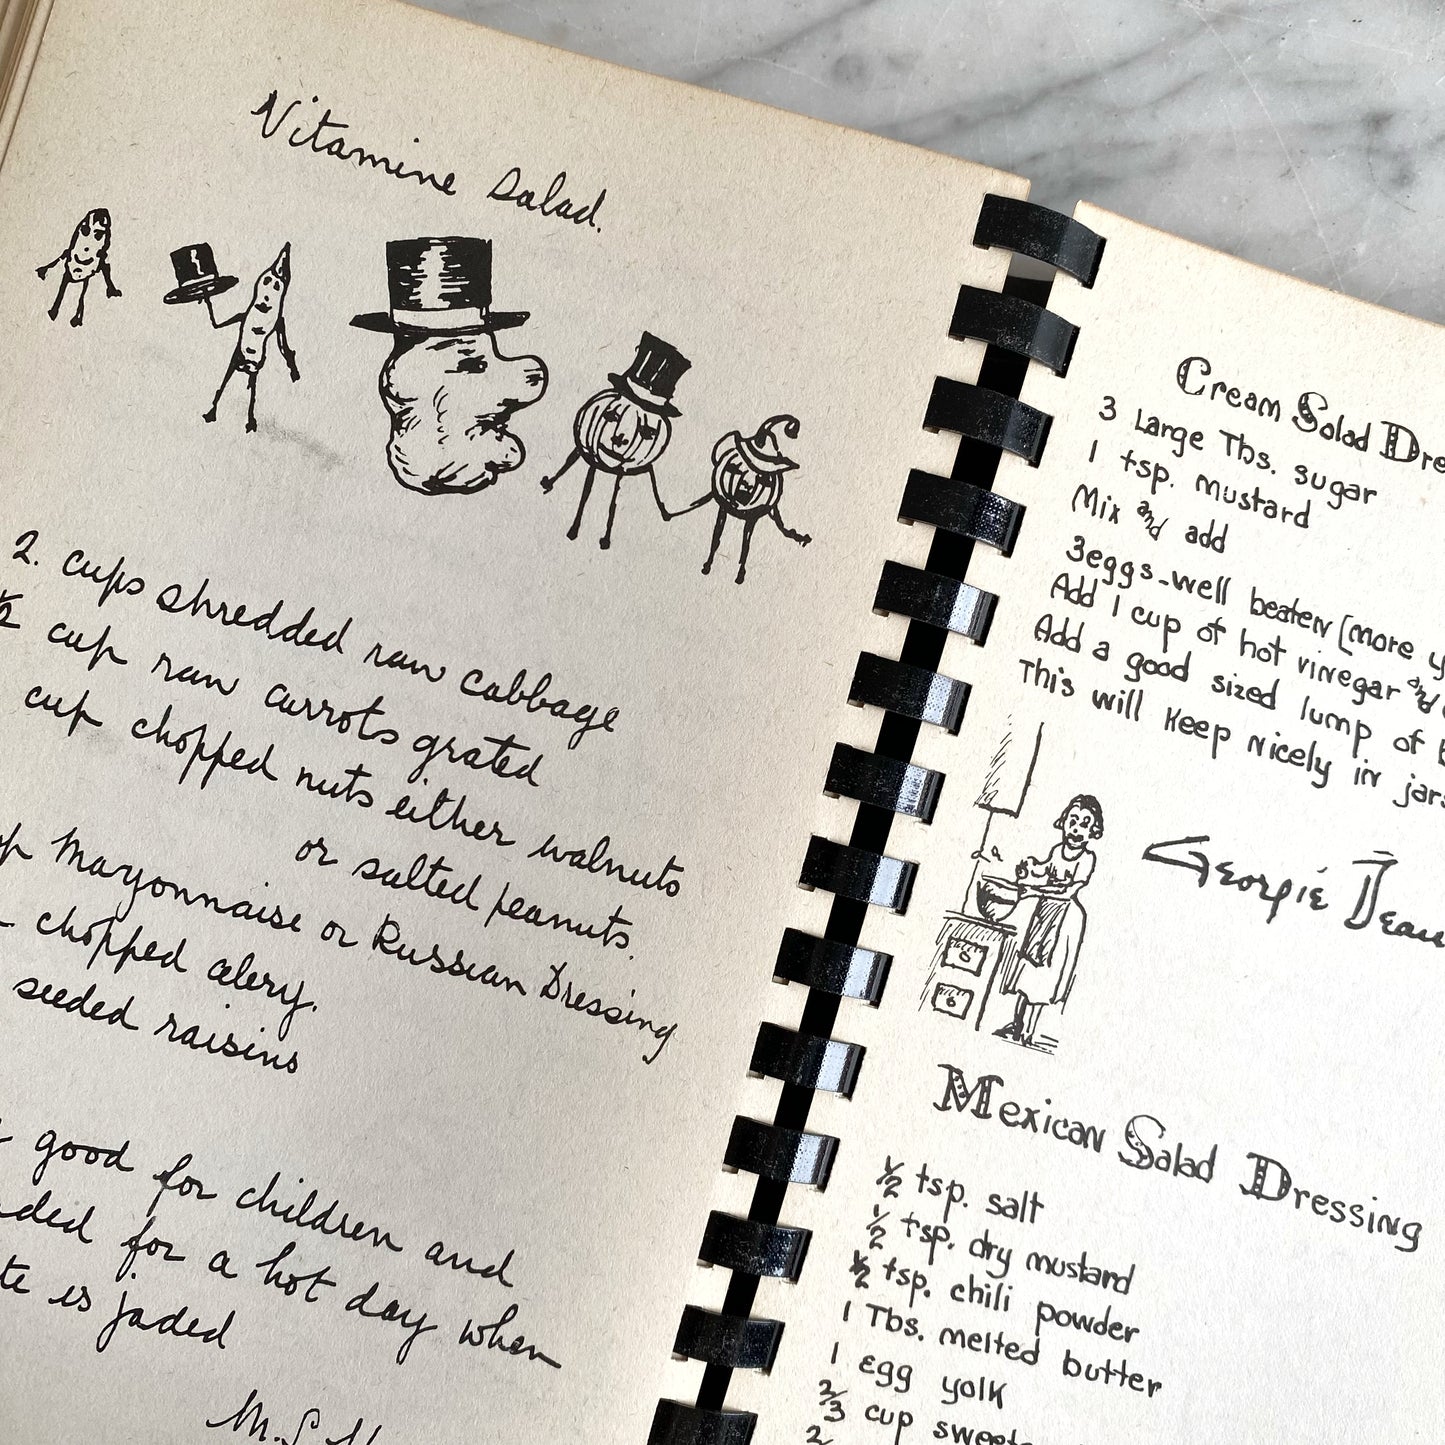 Vitamine Salad.
2. cups shredded raw cabbage
1/2 cup raw carrots grated
cup chopped nuts either walnuts
or salted peanuts.
Mayonnaise or Russian Dressing
chopped celery.
seeded raisins
good for children and
for a hot day when
is jaded
Cream Salad
3 Large Tbs. sugar
1 tsp. mustard
Mix and add
3 eggs-well beaten (more
Add 1 cup of hot vinegar and
Add a good sized lump of
This will keep nicely in
Georgie
Mexican Salad Dressing
1/2 tsp. salt
1/2 tsp. dry mustard
1/2 tsp. chili powder
1 Tbs. melted butter
1 egg yolk
2/3 cup
2